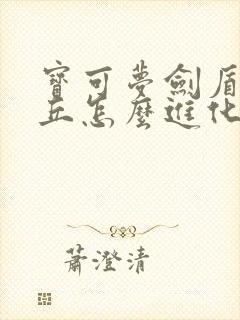 寶可夢劍盾
丘怎麼進化
蕭澄清